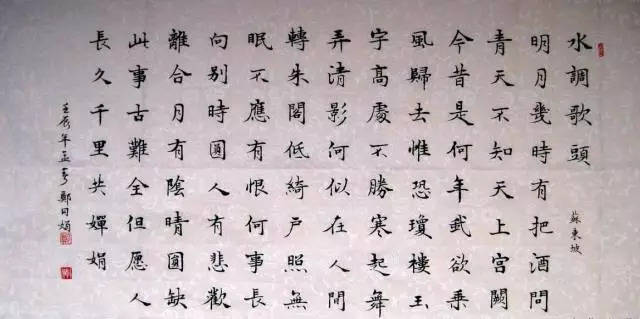 水調歌頭
蘇東坡
明月幾時有把酒問
青天不知天上宮闕
今昔是何年我欲乘
風歸去惟恐瓊樓玉
字高處不勝寒起舞
弄清影何似在人間
轉朱閣低綺户照無
眠不應有恨何事長
向別時圓人有悲歡
離合月有陰晴圓缺
此事古難全但愿人
長久千里共嬋娟
壬辰年孟春鄭娟